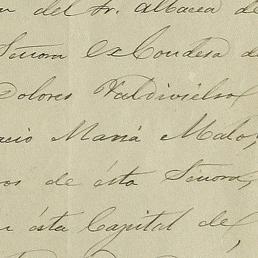 n del Sr. Albacea de
Señora Ex Condesa de
Dolores Valdivielso
acio María Malo,
os de ésta Señora,
n ésta Capital de